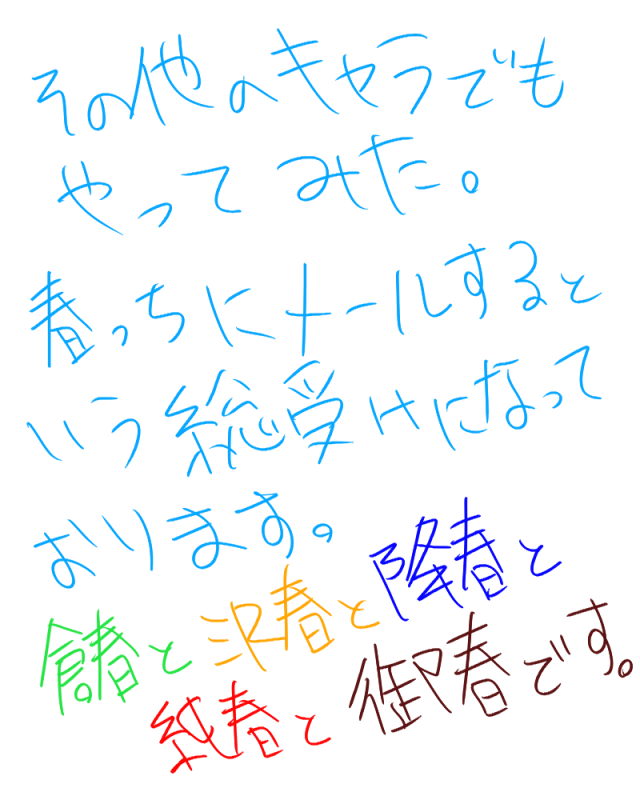 その他のキャラでも
やってみた。
春っちにメールすると
いう総受けになって
おります。
倉春と沢春と降春と
純春と御春です。